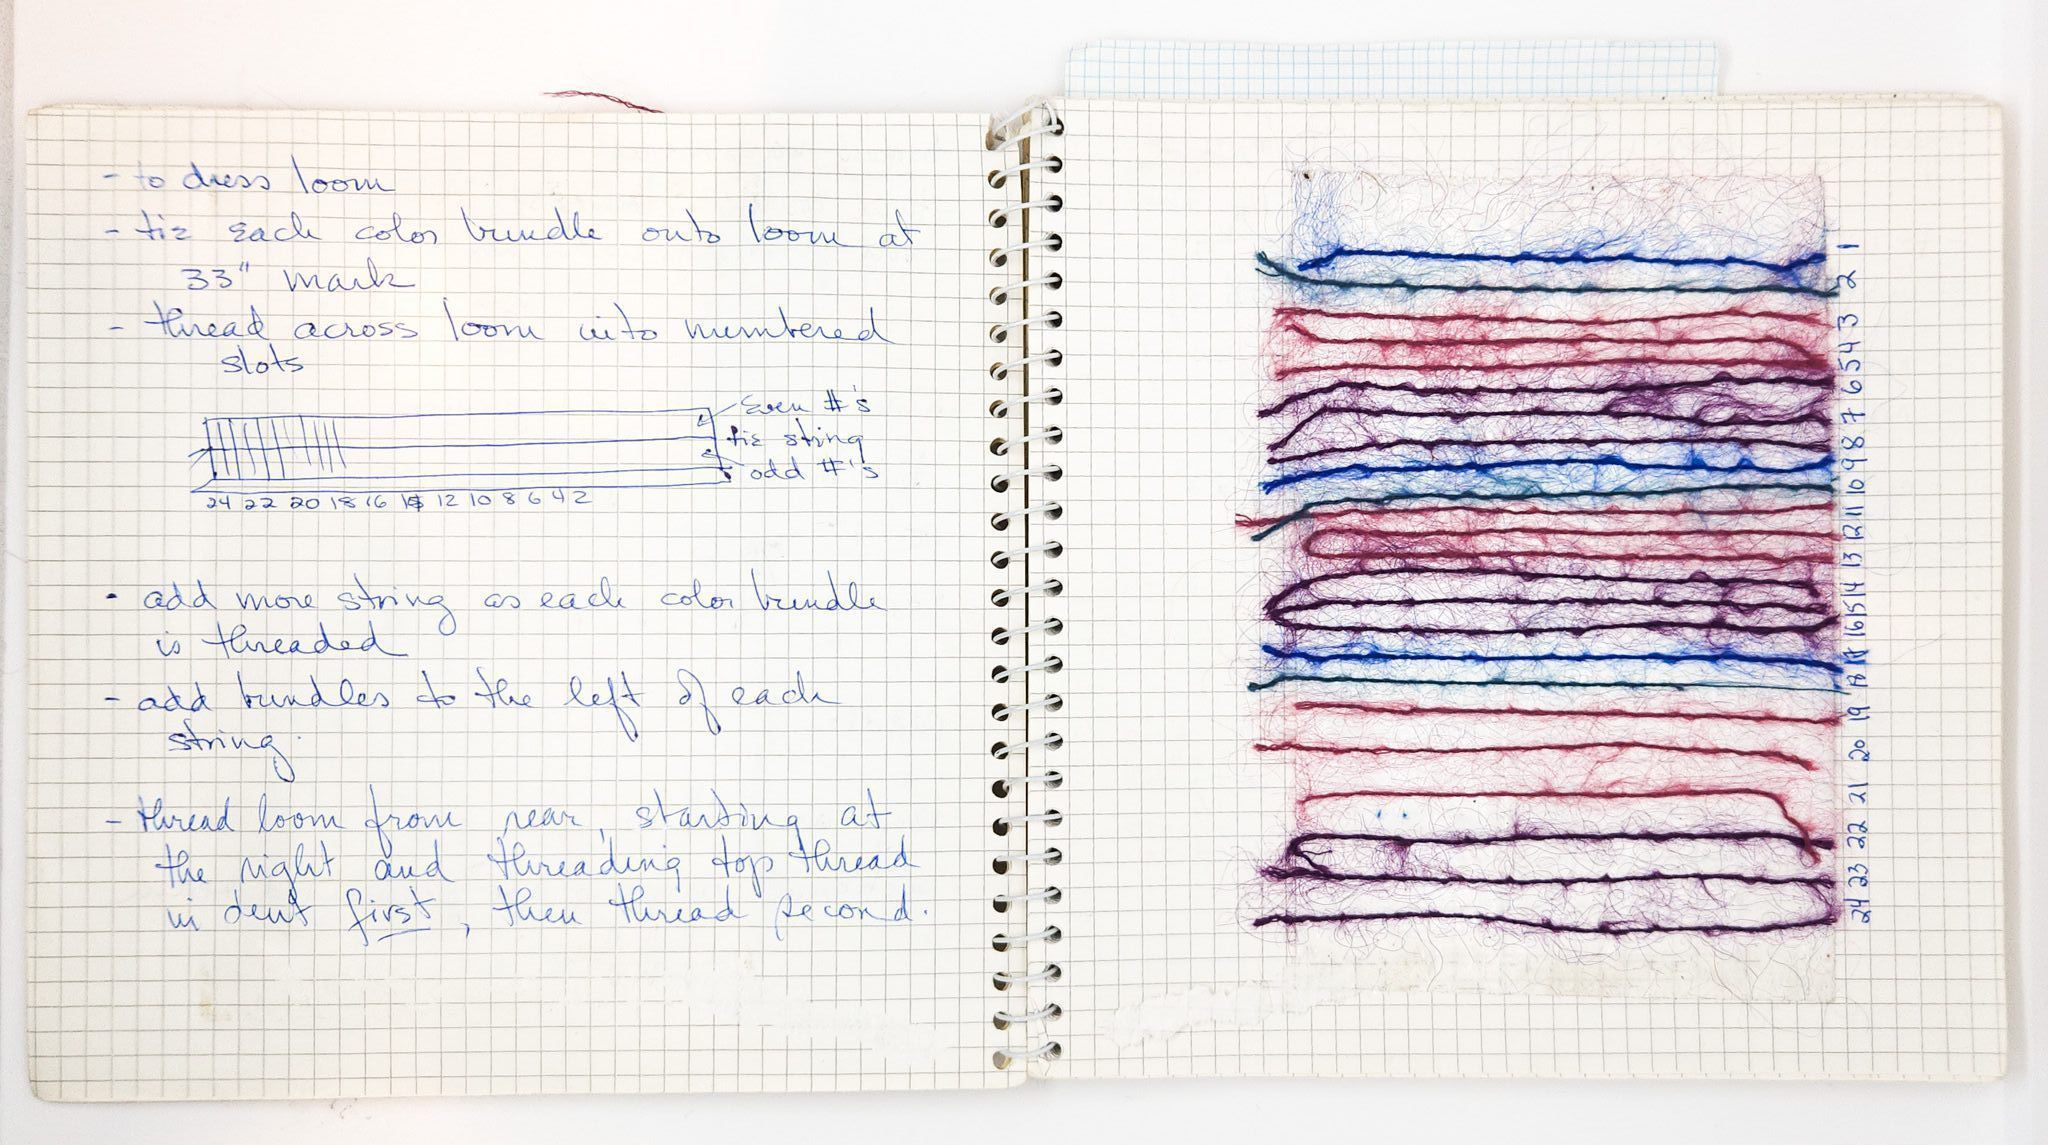 - to dress loom
- tie each color bundle onto loom at
33" mark
- thread across loom into numbered
slots
Even #'s
tie string
odd #'s
24 22 20 18 16 14 12 10 8 6 4 2
- add more string as each color bundle
is threaded
- add bundles to the left of each
string.
- thread loom from rear, starting at
the right and threading top thread
in dent first, then thread second.
1
2
3
4
5
6
7
8
9
10
11
12
13
14
15
16
17
18
19
20
21
22
23
24